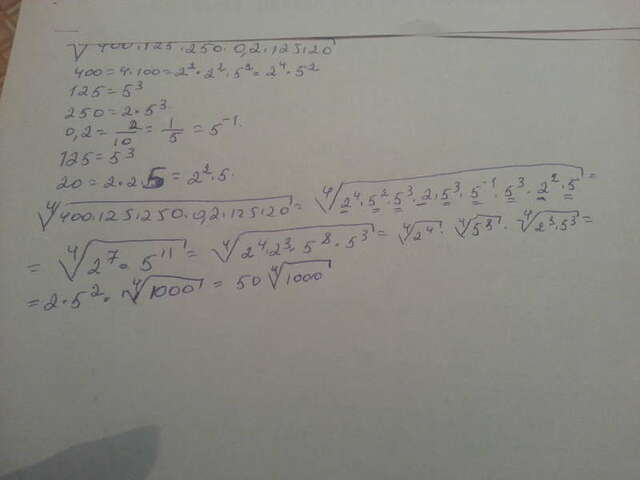 √400·125·250·0,2·125·20
400=4·100=2²·2²·5²=2⁴·5²
125=5³
250=2·5³.
0,2=2/10=1/5=5⁻¹.
125=5³
20=2·2·5=2²·5.
⁴√400·125·250·0,2·125·20=⁴√2⁴·5²·5³·2·5³·5⁻¹·5³·2²·5=
=⁴√2⁷·5¹¹=⁴√2⁴·2³·5⁸·5³=⁴√2⁴·⁴√5⁸·⁴√2³·5³=
=2·5²·⁴√1000=50⁴√1000